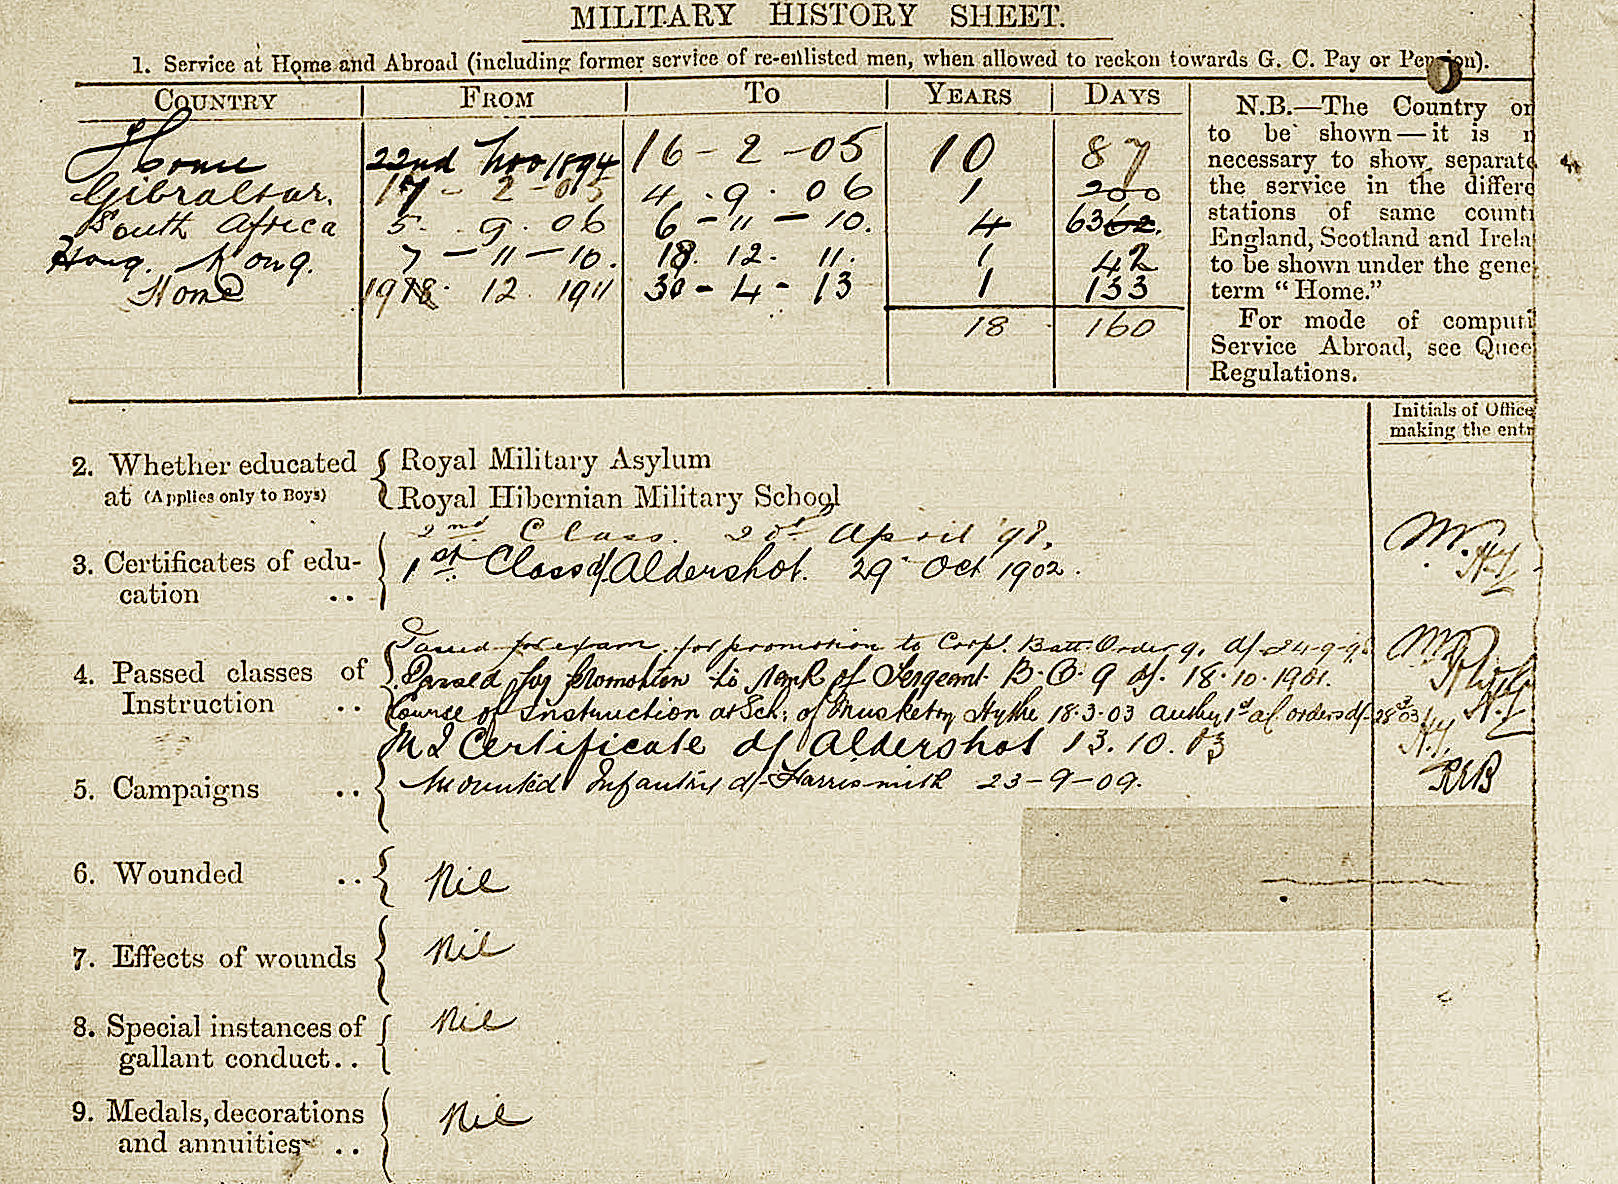 MILITARY HISTORY SHEET.
1. Service at Home and Abroad (including former service of re-enlisted men, when allowed to reckon towards G. C. Pay or Pension).
COUNTRY FROM TO YEARS DAYS
Home 22nd Nov 1894 16-2-05 10 87
Gibraltar. 17-2-05 4.9.06 1 200
South Africa 5.9.06 6-11-10. 4 63
Hong Kong. 7-11-10. 18.12.11. 1 42
Home 19 12 1911 30-4-13 1 133
18 160
N.B.—The Country on
to be shown—it is n
necessary to show separate
the service in the differe
stations of same countr
England, Scotland and Irela
to be shown under the gene
term "Home."
For mode of computi
Service Abroad, see Quee
Regulations.
Initials of Office
making the entr
2. Whether educated
at (Applies only to Boys)
Royal Military Asylum
Royal Hibernian Military School
3. Certificates of edu-
cation ..
2nd Class. April '98.
1st Class d/ Aldershot. 29 Oct 1902.
4. Passed classes of
Instruction ..
Passed for exam. for promotion to Corpl. Batt. Order 9. d/- 24-9-9
Passed for promotion to rank of Sergeant B.O. 9 d/. 18.10.1901.
Course of Instruction at Sch: of Musketry Hythe 18.3.03 authy 1st a/c orders d/- 28 03
M I Certificate d/ Aldershot 13.10.03
5. Campaigns ..
Mounted Infantry d/- Harrismith 23-9-09.
6. Wounded ..
Nil
7. Effects of wounds
Nil
8. Special instances of
gallant conduct..
Nil
9. Medals, decorations
and annuities ..
Nil